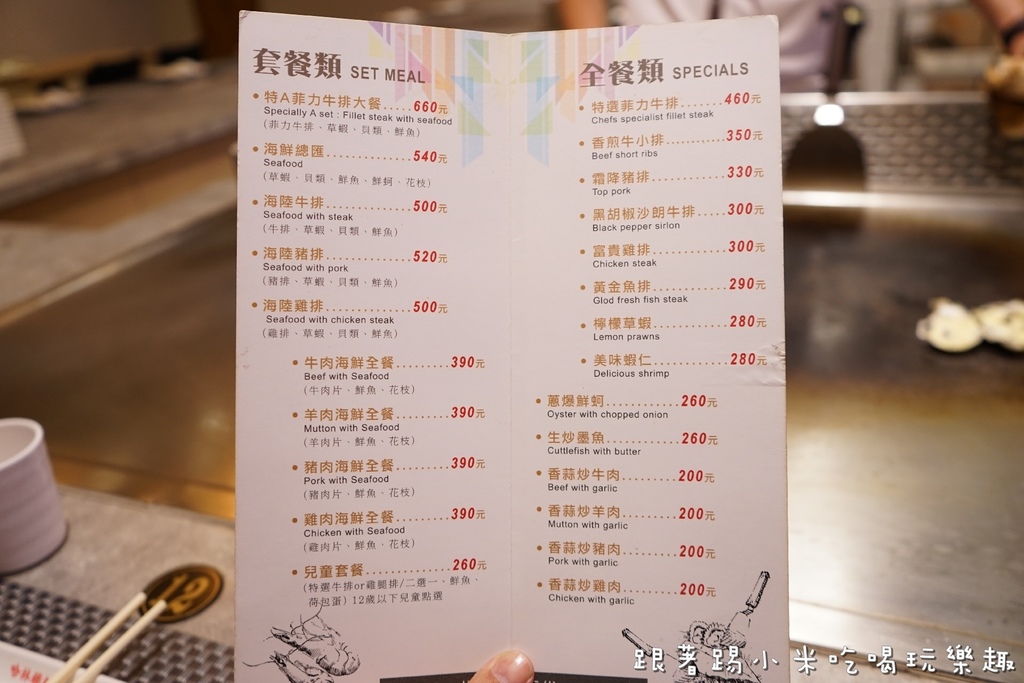 套餐類 SET MEAL
• 特A菲力牛排大餐.....660元
Specially A set : Fillet steak with seafood
(菲力牛排、草蝦、貝類、鮮魚)
• 海鮮總匯..............540元
Seafood
(草蝦、貝類、鮮魚、鮮蚵、花枝)
• 海陸牛排..............500元
Seafood with steak
(牛排、草蝦、貝類、鮮魚)
• 海陸豬排..............520元
Seafood with pork
(豬排、草蝦、貝類、鮮魚)
• 海陸雞排..............500元
Seafood with chicken steak
(雞排、草蝦、貝類、鮮魚)
• 牛肉海鮮全餐.........390元
Beef with Seafood
(牛肉片、鮮魚、花枝)
• 羊肉海鮮全餐.........390元
Mutton with Seafood
(羊肉片、鮮魚、花枝)
• 豬肉海鮮全餐.........390元
Pork with Seafood
(豬肉片、鮮魚、花枝)
• 雞肉海鮮全餐.........390元
Chicken with Seafood
(雞肉片、鮮魚、花枝)
• 兒童套餐..............260元
(特選牛排or雞腿排/二選一、鮮魚、
荷包蛋) 12歲以下兒童點選
全餐類 SPECIALS
• 特選菲力牛排.......460元
Chefs specialist fillet steak
• 香煎牛小排..........350元
Beef short ribs
• 霜降豬排.............330元
Top pork
• 黑胡椒沙朗牛排.....300元
Black pepper sirlon
• 富貴雞排.............300元
Chicken steak
• 黃金魚排.............290元
Glod fresh fish steak
• 檸檬草蝦.............280元
Lemon prawns
• 美味蝦仁.............280元
Delicious shrimp
• 蔥爆鮮蚵............260元
Oyster with chopped onion
• 生炒墨魚............260元
Cuttlefish with butter
• 香蒜炒牛肉.........200元
Beef with garlic
• 香蒜炒羊肉.........200元
Mutton with garlic
• 香蒜炒豬肉.........200元
Pork with garlic
• 香蒜炒雞肉.........200元
Chicken with garlic
12
跟著踢小米吃喝玩樂趣